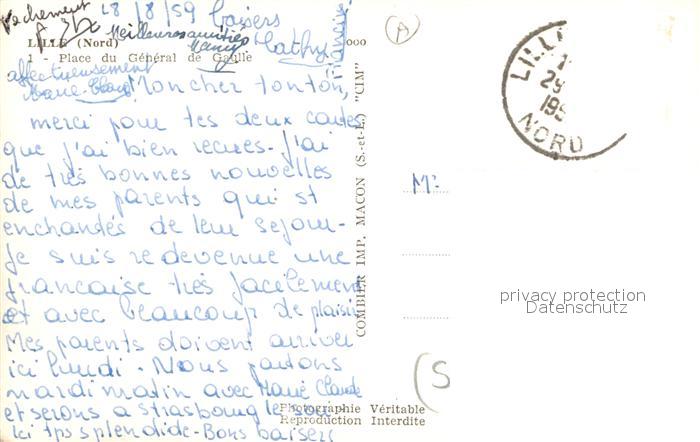 28/8/59 Baisers
Meilleures amitiés
Cathy
LILLE (Nord)
1 - Place du Général de Gaulle
affectueusement
Marie-Claude
Mon cher tonton,
merci pour tes deux cartes
que j'ai bien recues - J'ai
de très bonnes nouvelles
de mes parents qui st
enchantés de leur sejour -
Je suis redevenue une
francaise très facilement
et avec beaucoup de plaisir
Mes parents doivent arriver
ici lundi. Nous partons
mardi matin avec Marie Claude
et serons a Strasbourg le soir
Ici tps splendide - Bons baisers
COMBIER IMP. MACON (S.-et-L.) "CIM"
LILLE
29
195
NORD
A
M.
privacy protection
Datenschutz
(S
Photographie Véritable
Reproduction Interdite